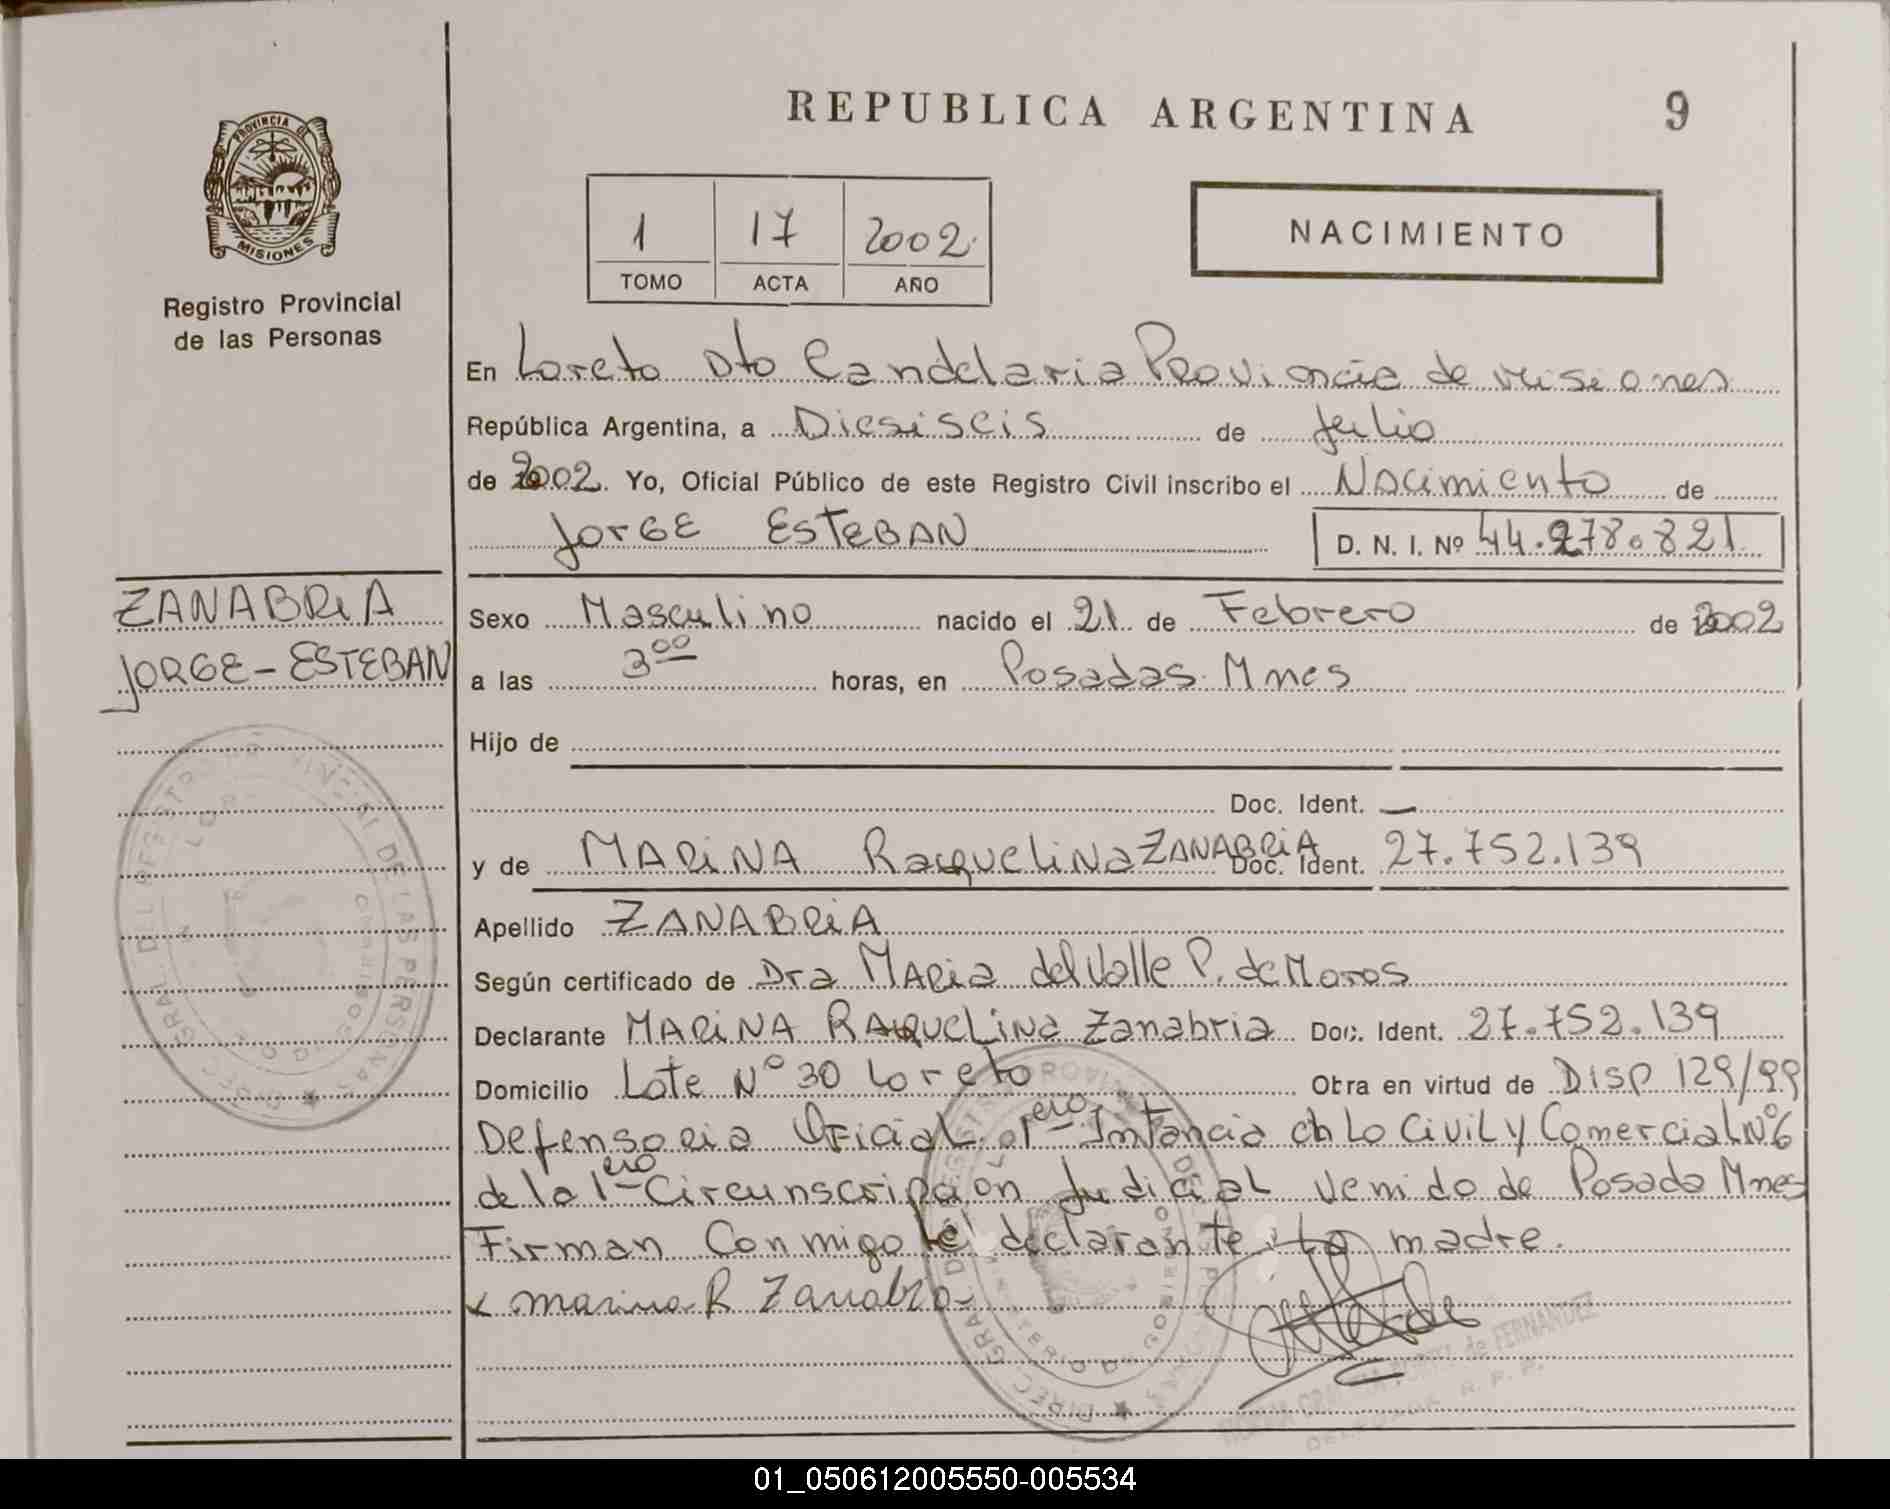 REPUBLICA ARGENTINA 9
PROVINCIA DE
MISIONES
Registro Provincial
de las Personas
1 17 2002
TOMO ACTA AÑO
NACIMIENTO
En Loreto Dto Candelaria Provincia de Misiones
República Argentina, a Diesiseis de Julio
de 2002. Yo, Oficial Público de este Registro Civil inscribo el Nacimiento de
JORGE ESTEBAN D. N. I. Nº 44.278.821
ZANABRIA
JORGE-ESTEBAN
Sexo Masculino nacido el 21 de Febrero de 2002
a las 3 00 horas, en Posadas Mnes
Hijo de
Doc. Ident. —
y de MARINA RaquelinA ZANABRIA Doc. Ident. 27.752.139
Apellido ZANABRIA
Según certificado de Dra MARia del Valle P. de Moros
Declarante MARINA RAQUELINA Zanabria Doc. Ident. 27.752.139
Domicilio Lote Nº 30 Loreto Obra en virtud de DISP 129/99
Defensoria Oficial 1ero Intancia en Lo Civil y Comercial Nº 6
de la 1ero Circunscripcion Judicial Venido de Posada Mnes
Firman Conmigo el declarante La madre.
Marina R Zanabria
DIREC. GRAL. DEL REGISTRO PROVINCIAL DE LAS PERSONAS
DIREC. GRAL. DEL REGISTRO PROVINCIAL DE LAS PERSONAS
MINISTERIO DE GOBIERNO
de FERNANDEZ
R. P. P.
01_050612005550-005534